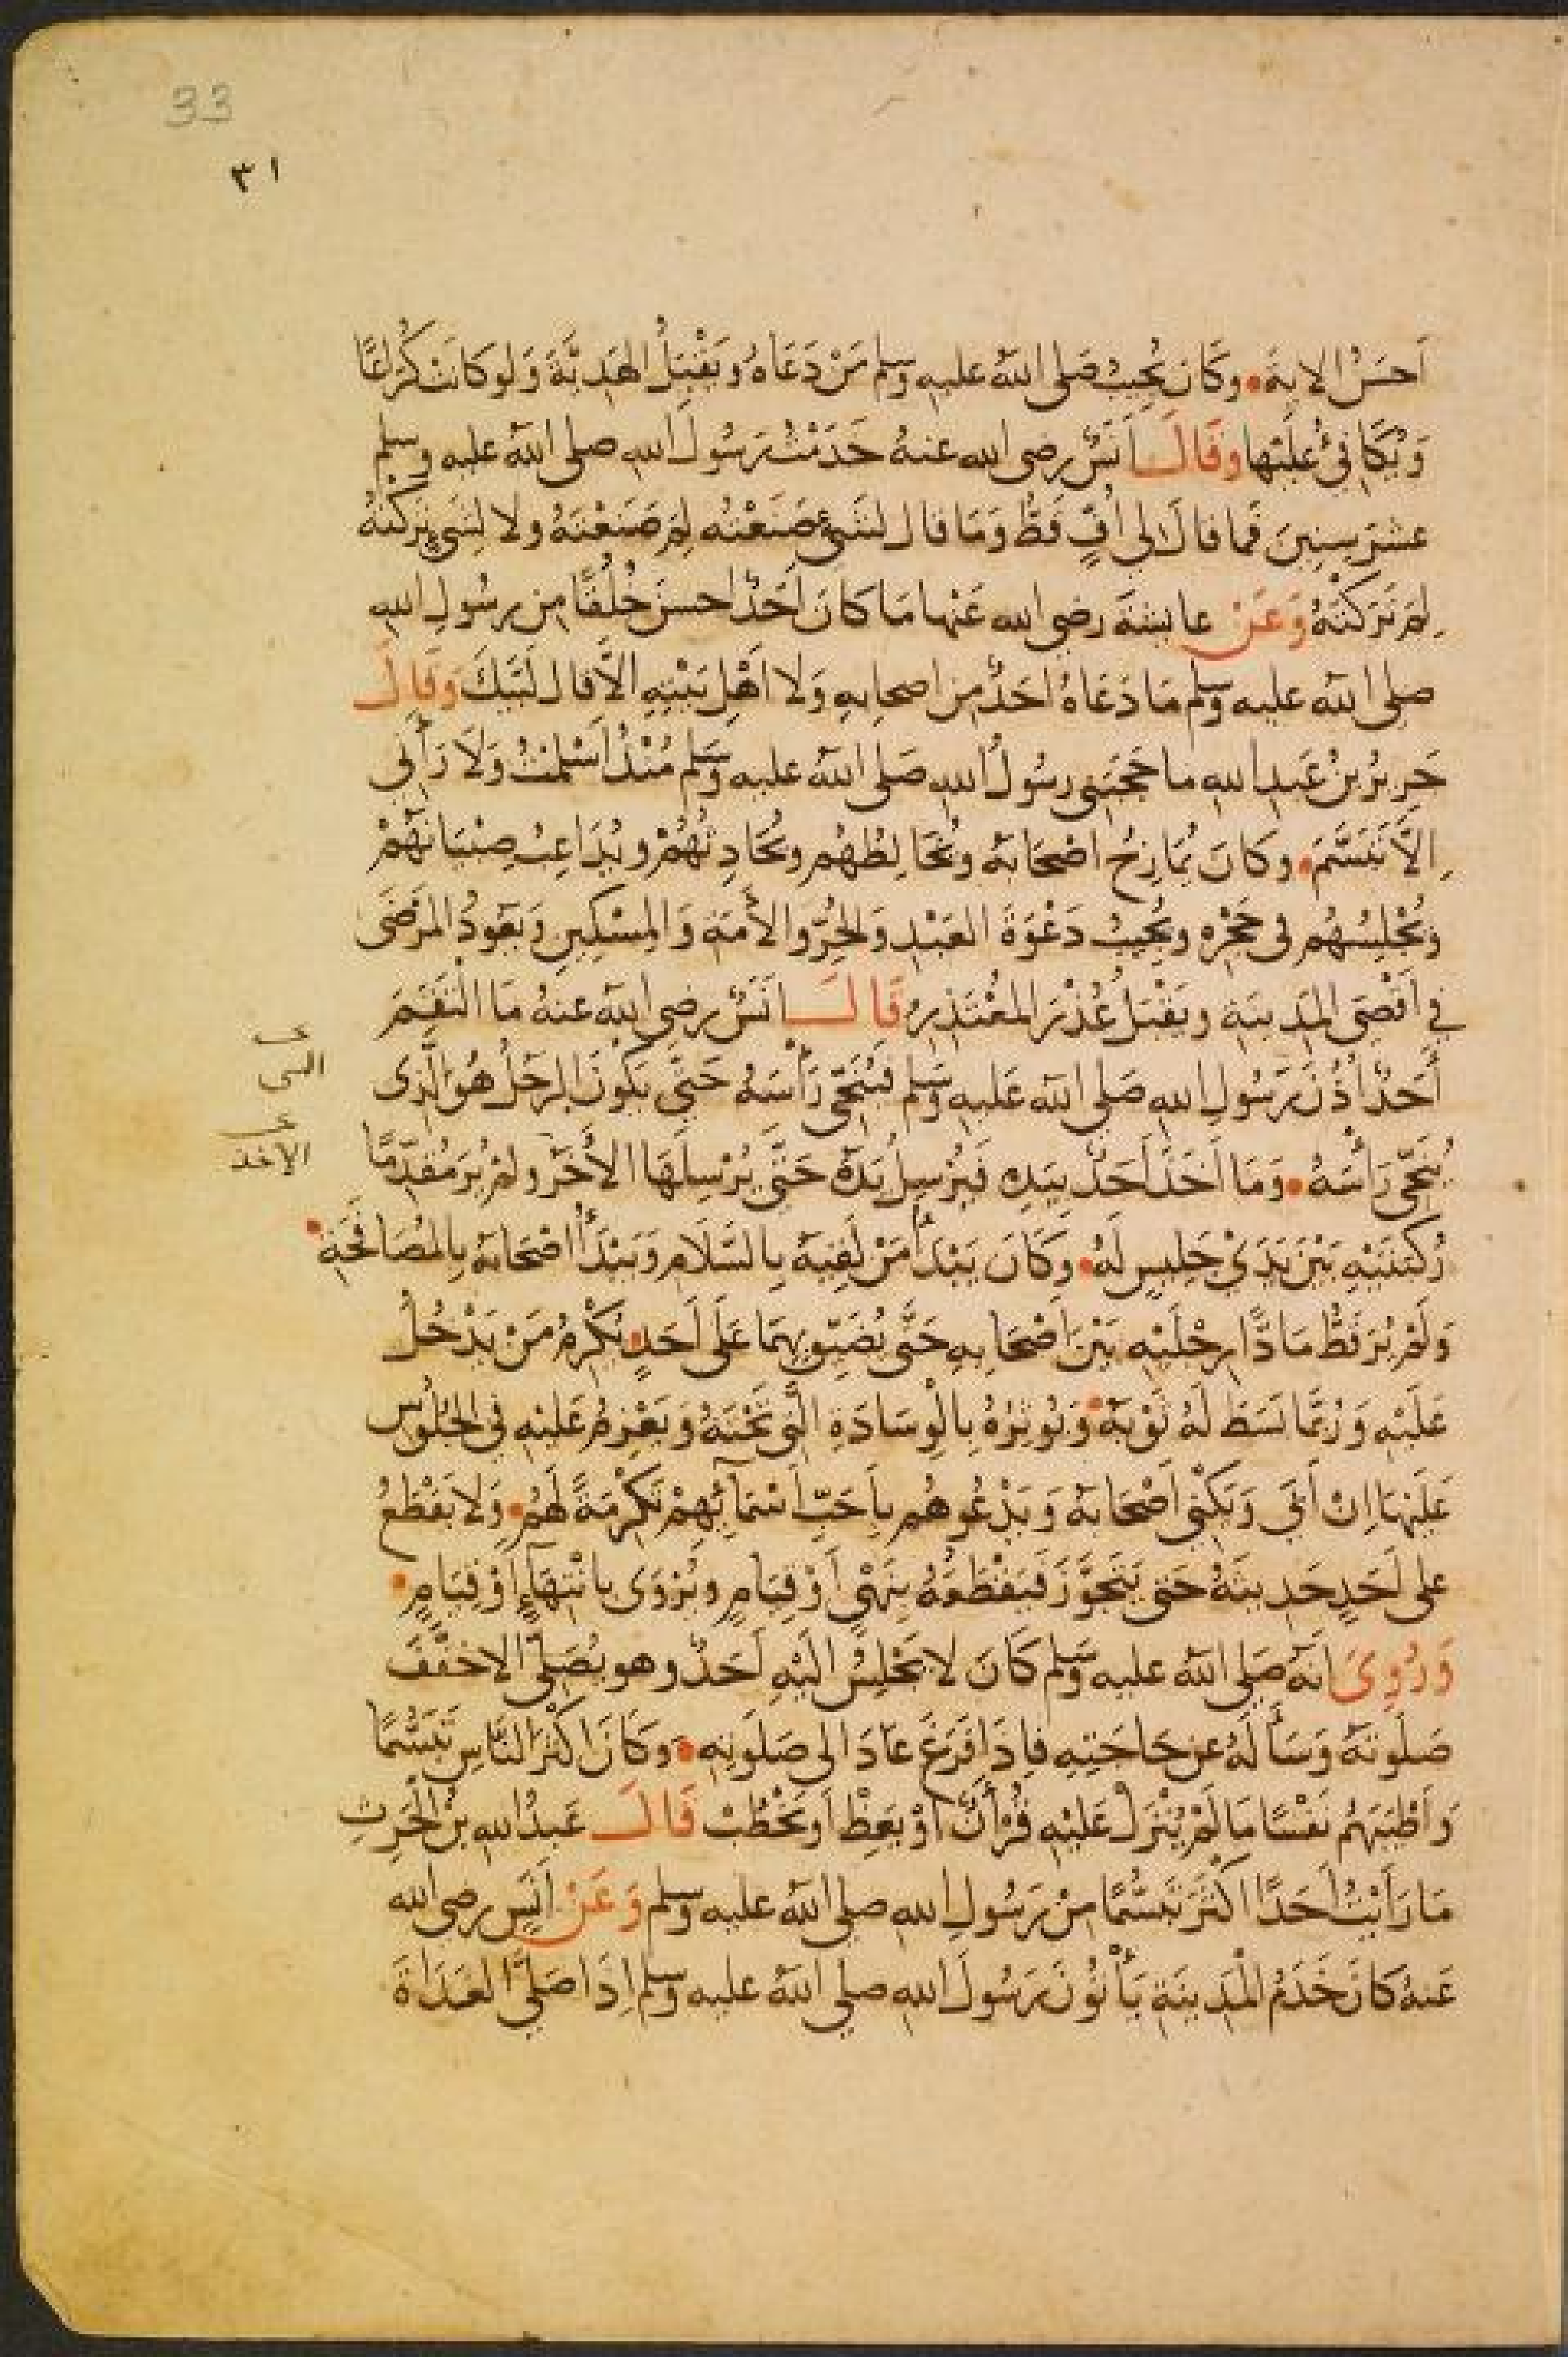 33
٣١
اَحسَنُ الاية • وكَان يُجِيبُ صَلى اللهُ عليه وسلم مَنْ دَعَاهُ ويَقْبَلُ الهَديَّةَ وَلَو كَانَتْ كُرَاعًا
وَيُكَافئُ عليْها وقَالَ اَنَسٌ رضى الله عنهُ خَدَمْتُ رَسُولَ الله صلى اللهُ عليه وسلم
عشرَ سِنِينَ فما قالَ لى اُفٍّ قَطُّ وَمَا قال لشَىْءٍ صَنَعْتُه لِمَ صَنَعْتَهُ ولا لِشَىءٍ تَرَكْتُهُ
لِمَ تَرَكْتَهُ وَعَنْ عايشَةَ رضى الله عَنْها مَا كَانَ اَحَدٌ احسنَ خُلُقًا مِن رسُولِ الله
صلى اللهُ عليه وسلم مَا دَعَاهُ اَحَدٌ مِن اصحابِهِ وَلا اَهْلِ بَيْتِهِ الاَّ قال لَبَّيكَ وَقَالَ
جَرِيرُ بنُ عَبدِ الله ما حَجَبَنى رسُولُ الله صَلى اللهُ عليه وسلم مُنْذُ اَسْلَمْتُ وَلاَ رَأَنِى
اِلاَّ تَبَسَّمَ • وكَانَ يُمَازِحُ اصْحَابَهُ ويُخَالِطُهُم ويُحَادِثُهُمْ ويُدَاعِبُ صِبْيَانَهُمْ
وَيُجْلِسُهُم فى حَجْرِه ويُجِيبُ دَعْوَةَ العَبْدِ وَالحُرِّ والاَمَةِ وَالمِسْكِينِ وَيَعُودُ المَرْضَى
فى اَقْصَى المَدينَةِ ويَقْبَلُ عُذْرَ المعْتَذِرِ قَالَ اَنَسٌ رضى اللهُ عنهُ مَا التَقَمَ
أحَدٌ اُذُنَ رَسُولِ الله صَلى الله عَليهِ وسلم فيُنَحّى رَأْسَهُ حَتَّى يَكُونَ الرَجُلُ هُوَ الَّذى
يُنَحّى رَأْسَهُ • وَمَا اَخَذَ اَحَدٌ بِيَدِه فَيُرْسِلُ يَدَهُ حَتَّى يُرْسِلَهَا الأَخَرُ ولَمْ يُرَ مُقَدِّمًا
رُكْبَتَيْهِ بَيْنَ يَدَىْ جَلِيسٍ لَهُ • وكَانَ يَبْدَأُ مَنْ لَقِيَهُ بِالسَّلَامِ وَيَبْدَأُ اصْحَابَهُ بِالمُصَافَحَةِ •
وَلَمْ يُرَ قَطُّ مَادًّا رِجْلَيْهِ بَيْنَ اَصْحَابِهِ حَتَّى يُضَيِّقَ بِهِمَا عَلَى اَحَدٍ • يُكْرِمُ مَنْ يَدْخُلُ
عَلَيْهِ وَرُبَّمَا بَسَطَ لَهُ ثَوْبَهُ • وَيُوثِرُهُ بِالْوِسَادَةِ الَّتى تَحْتَهُ وَيَعْزِمُ عَليْهِ فى الجُلُوسِ
عَلَيْهَا اِنْ اَبَى وَيُكَنّى اَصْحَابَهُ وَيَدْعُوهُم بِاَحَبِّ اَسْمَائِهِمْ تَكْرِمَةً لَهُم • وَلا يَقْطَعُ
على اَحَدٍ حَدِيثَهُ حَتّى يَتَجَوَّزَ فَيَقْطَعُهُ بِنَهْىٍ اَوْ قِيَامٍ ويُرْوَى بِانْتِهَاءٍ اَوْ قِيَامٍ •
وَرُوِىَ اَنّهُ صَلى اللهُ عليه وسلم كَانَ لا يَجْلِسُ الَيْهِ اَحَدٌ وهو يُصَلّى الا خَفَّفَ
صَلَوتَهُ وَسَأَلَهُ عن حَاجَتِهِ فاِذَا فَرَغَ عَادَ الى صَلَوتِهِ • وكَانَ اَكْثَرَ النَّاسِ تَبَسُّمًا
وَاَطْيَبَهُم نَفْسًا مَا لَمْ يُنْزَلْ عَليْهِ قُرْأَنٌ اَوْ يَعِظْ اَو يَخْطُبْ قَالَ عَبدُ اللهِ بنُ الْحَرِثِ
مَا رَأَيْتُ اَحَدًا اَكْثَرَ تَبَسُّمًا مِنْ رَسُولِ الله صلى اللهُ عليه وسلم وَعَنْ اَنَسٍ رضى الله
عَنهُ كَانَ خَدَمُ الْمَدِينَةِ يَأْتُوْنَ رَسُولَ الله صلى اللهُ عليه وسلم اِذَا صَلىَّ الغَدَاةَ